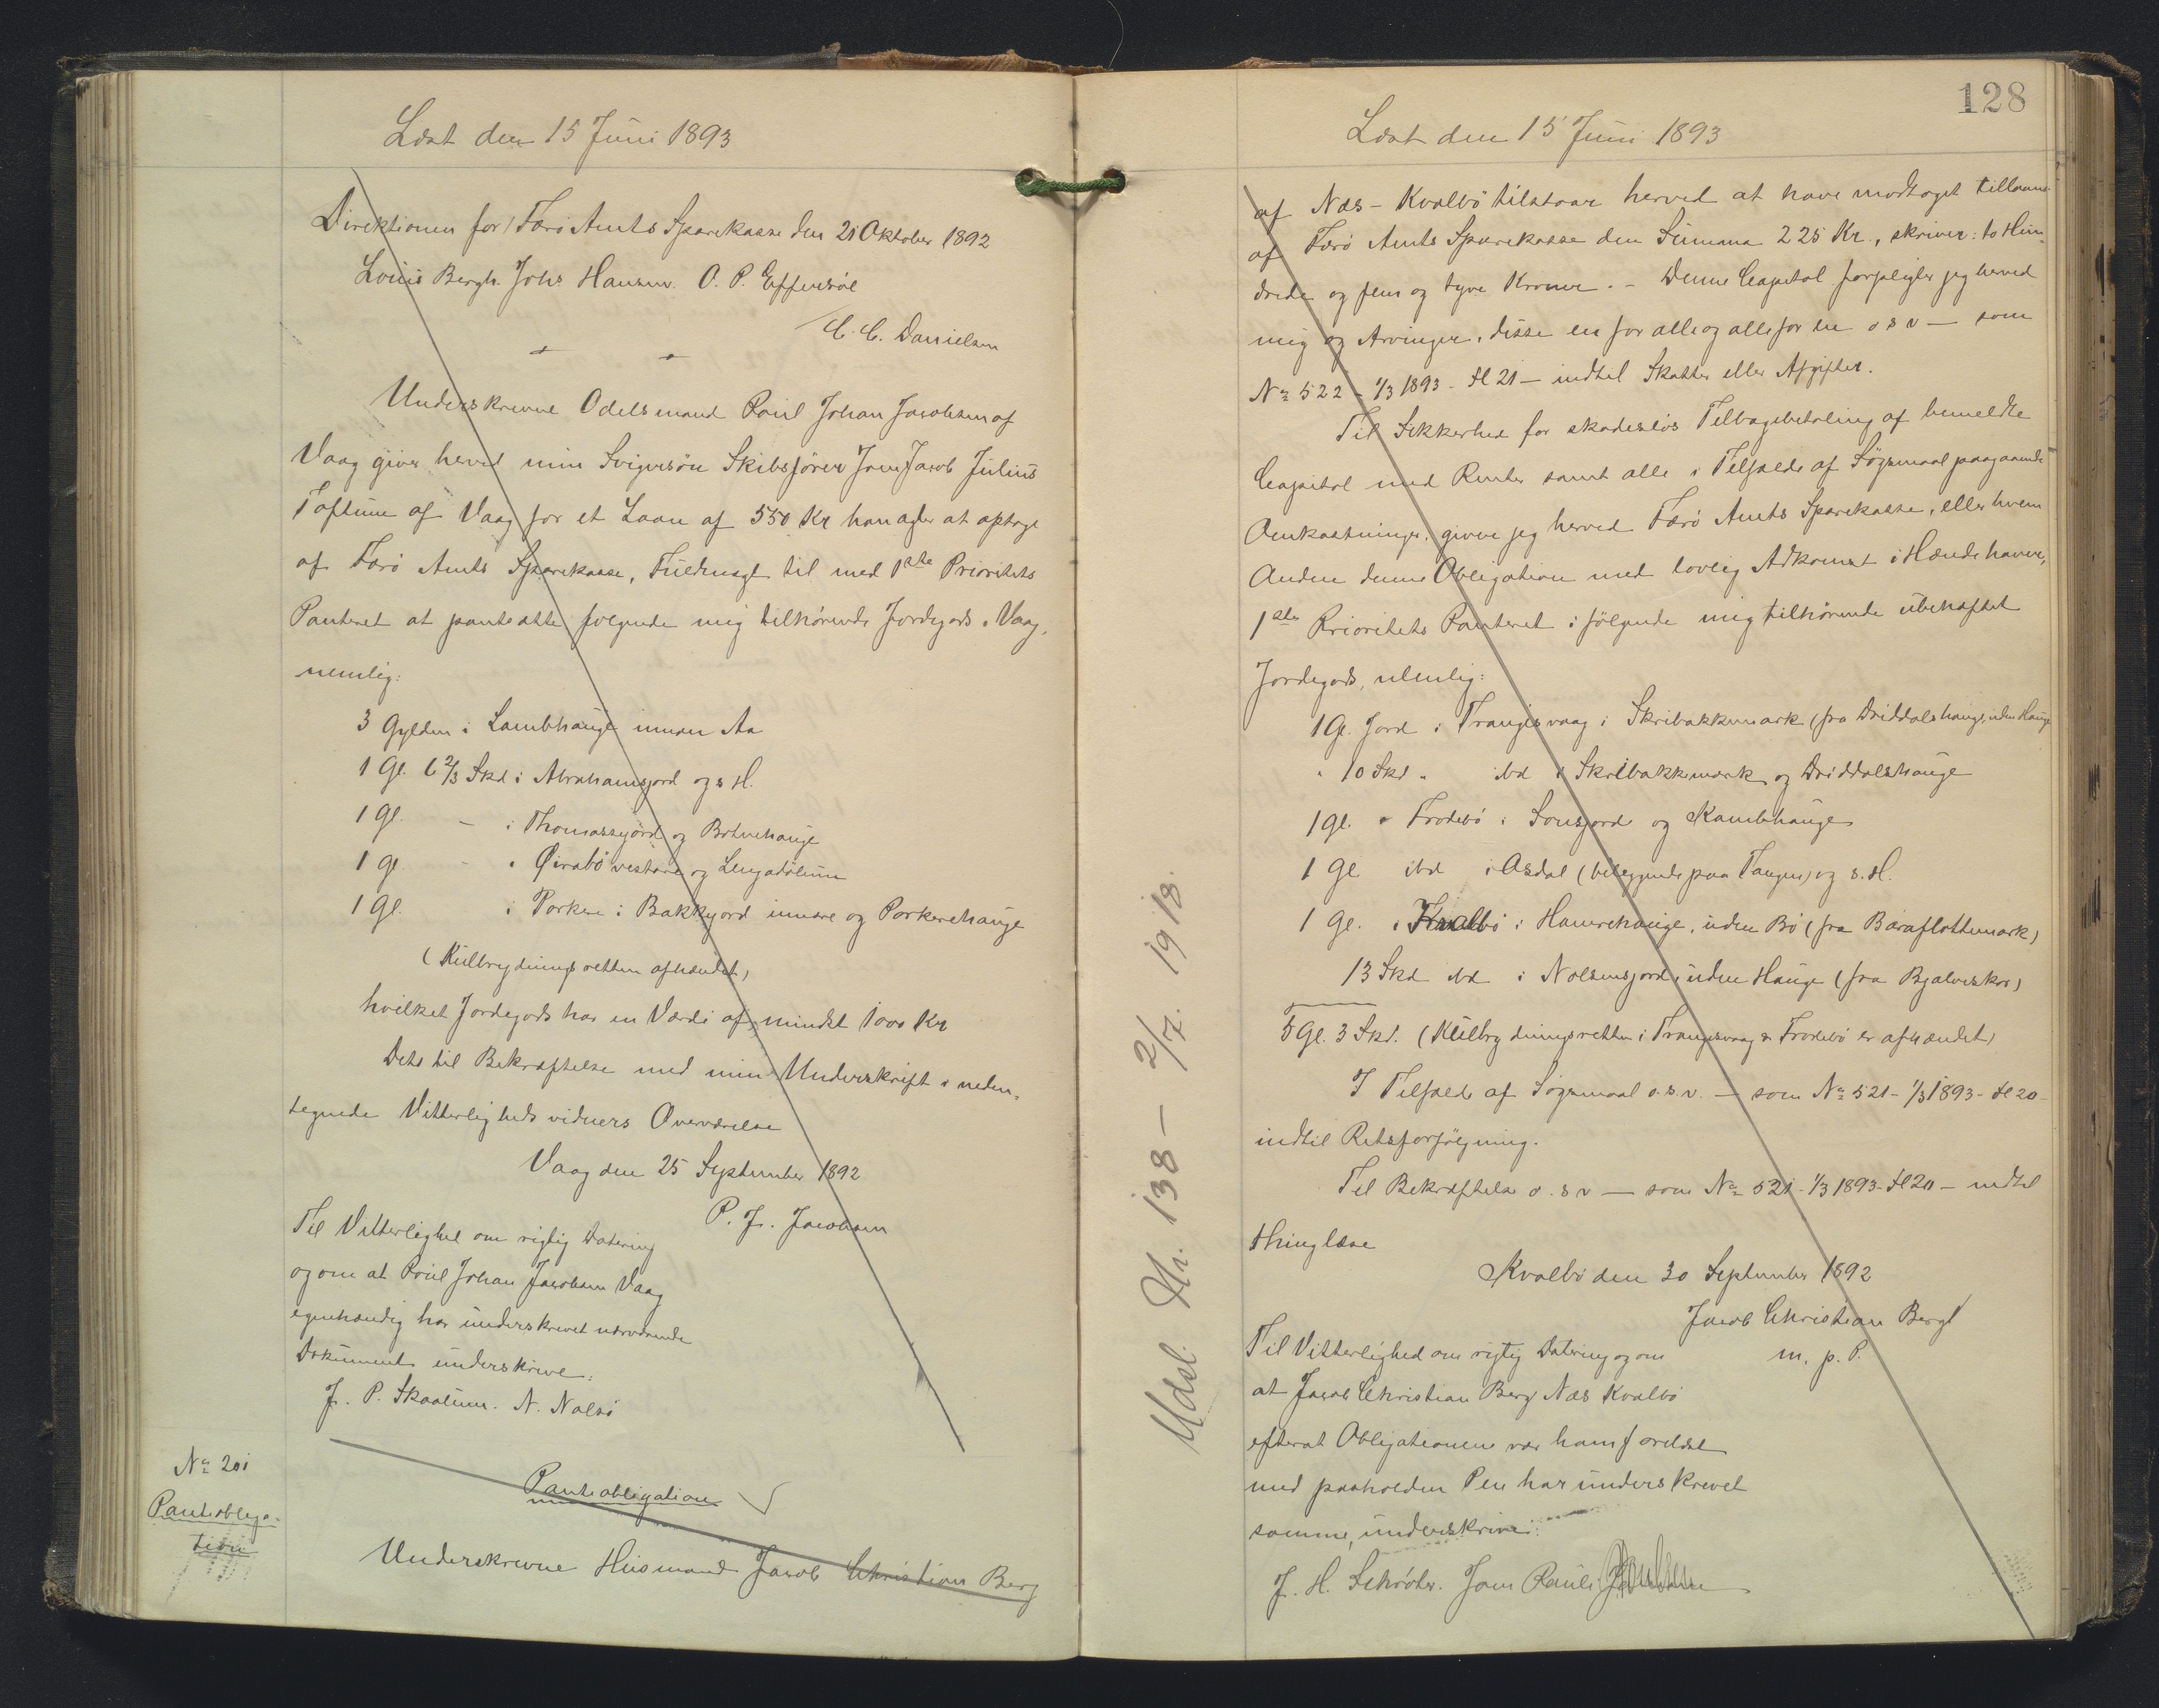 Læst den 15 Juni 1893
Direktionen for Færø Amts Sparekasse den 21 Oktober 1892
Louis Bergh. Johs Hansen. O. P. Effersøe
C. C. Danielsen
Underskrevne Odelsmand Poul Johan Jacobsen af
Vaag giver herved min Svigersøn Skibsfører Jens Jacob Julius
Toftum af Vaag for et Laan af 550 Kr han agter at optage
af Færø Amts Sparekasse, Fuldmagt til med 1ste Prioritets
Panteret at pantsætte følgende mig tilhørende Jordegods i Vaag,
nemlig:
3 Gylden i Lambhauge innan Aa
1 Gl. 6 2/3 Skd i Abrahamsjord og s H.
1 Gl. - i Thomassejord og Botnehauge
1 Gl - i Øirabø vestare og Lengadølum
1 Gl. i Porkere i Bakkejord innare og Porkerehauge
(Kulbrydningsretten afhændet)
hvilket Jordegods har en Værdi af mindst 1000 Kr
Dets til Bekræftelse med min Underskrift i neden-
tegnede Vitterlighedsvidners Overværelse
Vaag den 25 September 1892
P. J. Jacobsen
Til Vitterlighed om rigtig Datering
og om at Poul Johan Jacobsen Vaag
egenhændig har underskrevet nærværende
Dokument underskrive:
J. P. Skaalum. N. Nolsø
No 201
Pantobliga-
tion
Pantobligation
Underskrevne Husmand Jacob Christian Berg
128
Læst den 15 Juni 1893
af Næs - Kvalbø tilstaar herved at have modtaget tillaans
af Færø Amts Sparekasse den Summa 225 Kr., skriver: to Hun-
drede og fem og tyve Kroner. - Denne Capital forpligter jeg herved
mig og Arvinger, disse en for alle og alle for en o s v - som
No 522 - 1/3 1893 - Fl 21 - indtil Skatter eller Afgifter.
Til Sikkerhed for skadesløs Tilbagebetaling af bemeldte
Capital med Renter samt alle i Tilfælde af Søgsmaal paagaaende
Omkostninger, giver jeg herved Færø Amts Sparekasse, eller hvem
Anden denne Obligation med lovlig Adkomst i Hænde haver,
1ste Prioritets Panteret i følgende mig tilhørende ubehæftet
Jordegods, nemlig:
1 Gl. Jord i Trangisvaag i Skribakkemark (fra Driddalshauge, uden Hauge
" 10 Skd " ibd i Skribakkemark og Driddalshauge
1 Gl. " Frodebø i Sonsjord og Kambhauge
1 Gl ibd i Asdal (beliggende paa Tangen) og s. H.
1 Gl. i Kvalbø i Hamrehauge, uden Bø (fra Baraflottemark)
13 Skd ibd i Nolsensjord, uden Hauge (fra Bjalveskor)
5 Gl. 3 Skd. (Kulbrydningsretten i Trangisvaag & Frodebø er afhændet)
I Tilfælde af Søgsmaal o.s.v. - som No 521 - 1/3 1893 - Fl 20 -
indtil Retsforfølgning.
Til Bekræftelse o. s v - som No 521 - 1/3 1893 - Fl 20 - indtil
thinglæse
Kvalbø den 30 September 1892
Jacob Christian Berg
m. p. P.
Til Vitterlighed om rigtig Datering og om
at Jacob Christian Berg Næs Kvalbø
efterat Obligationen var ham forelæst
med paaholden Pen har underskrevet
samme, underskrive:
J. H. Schrøter. Jens Pauli
Udsl. Nr. 138 - 2/7. 1918.